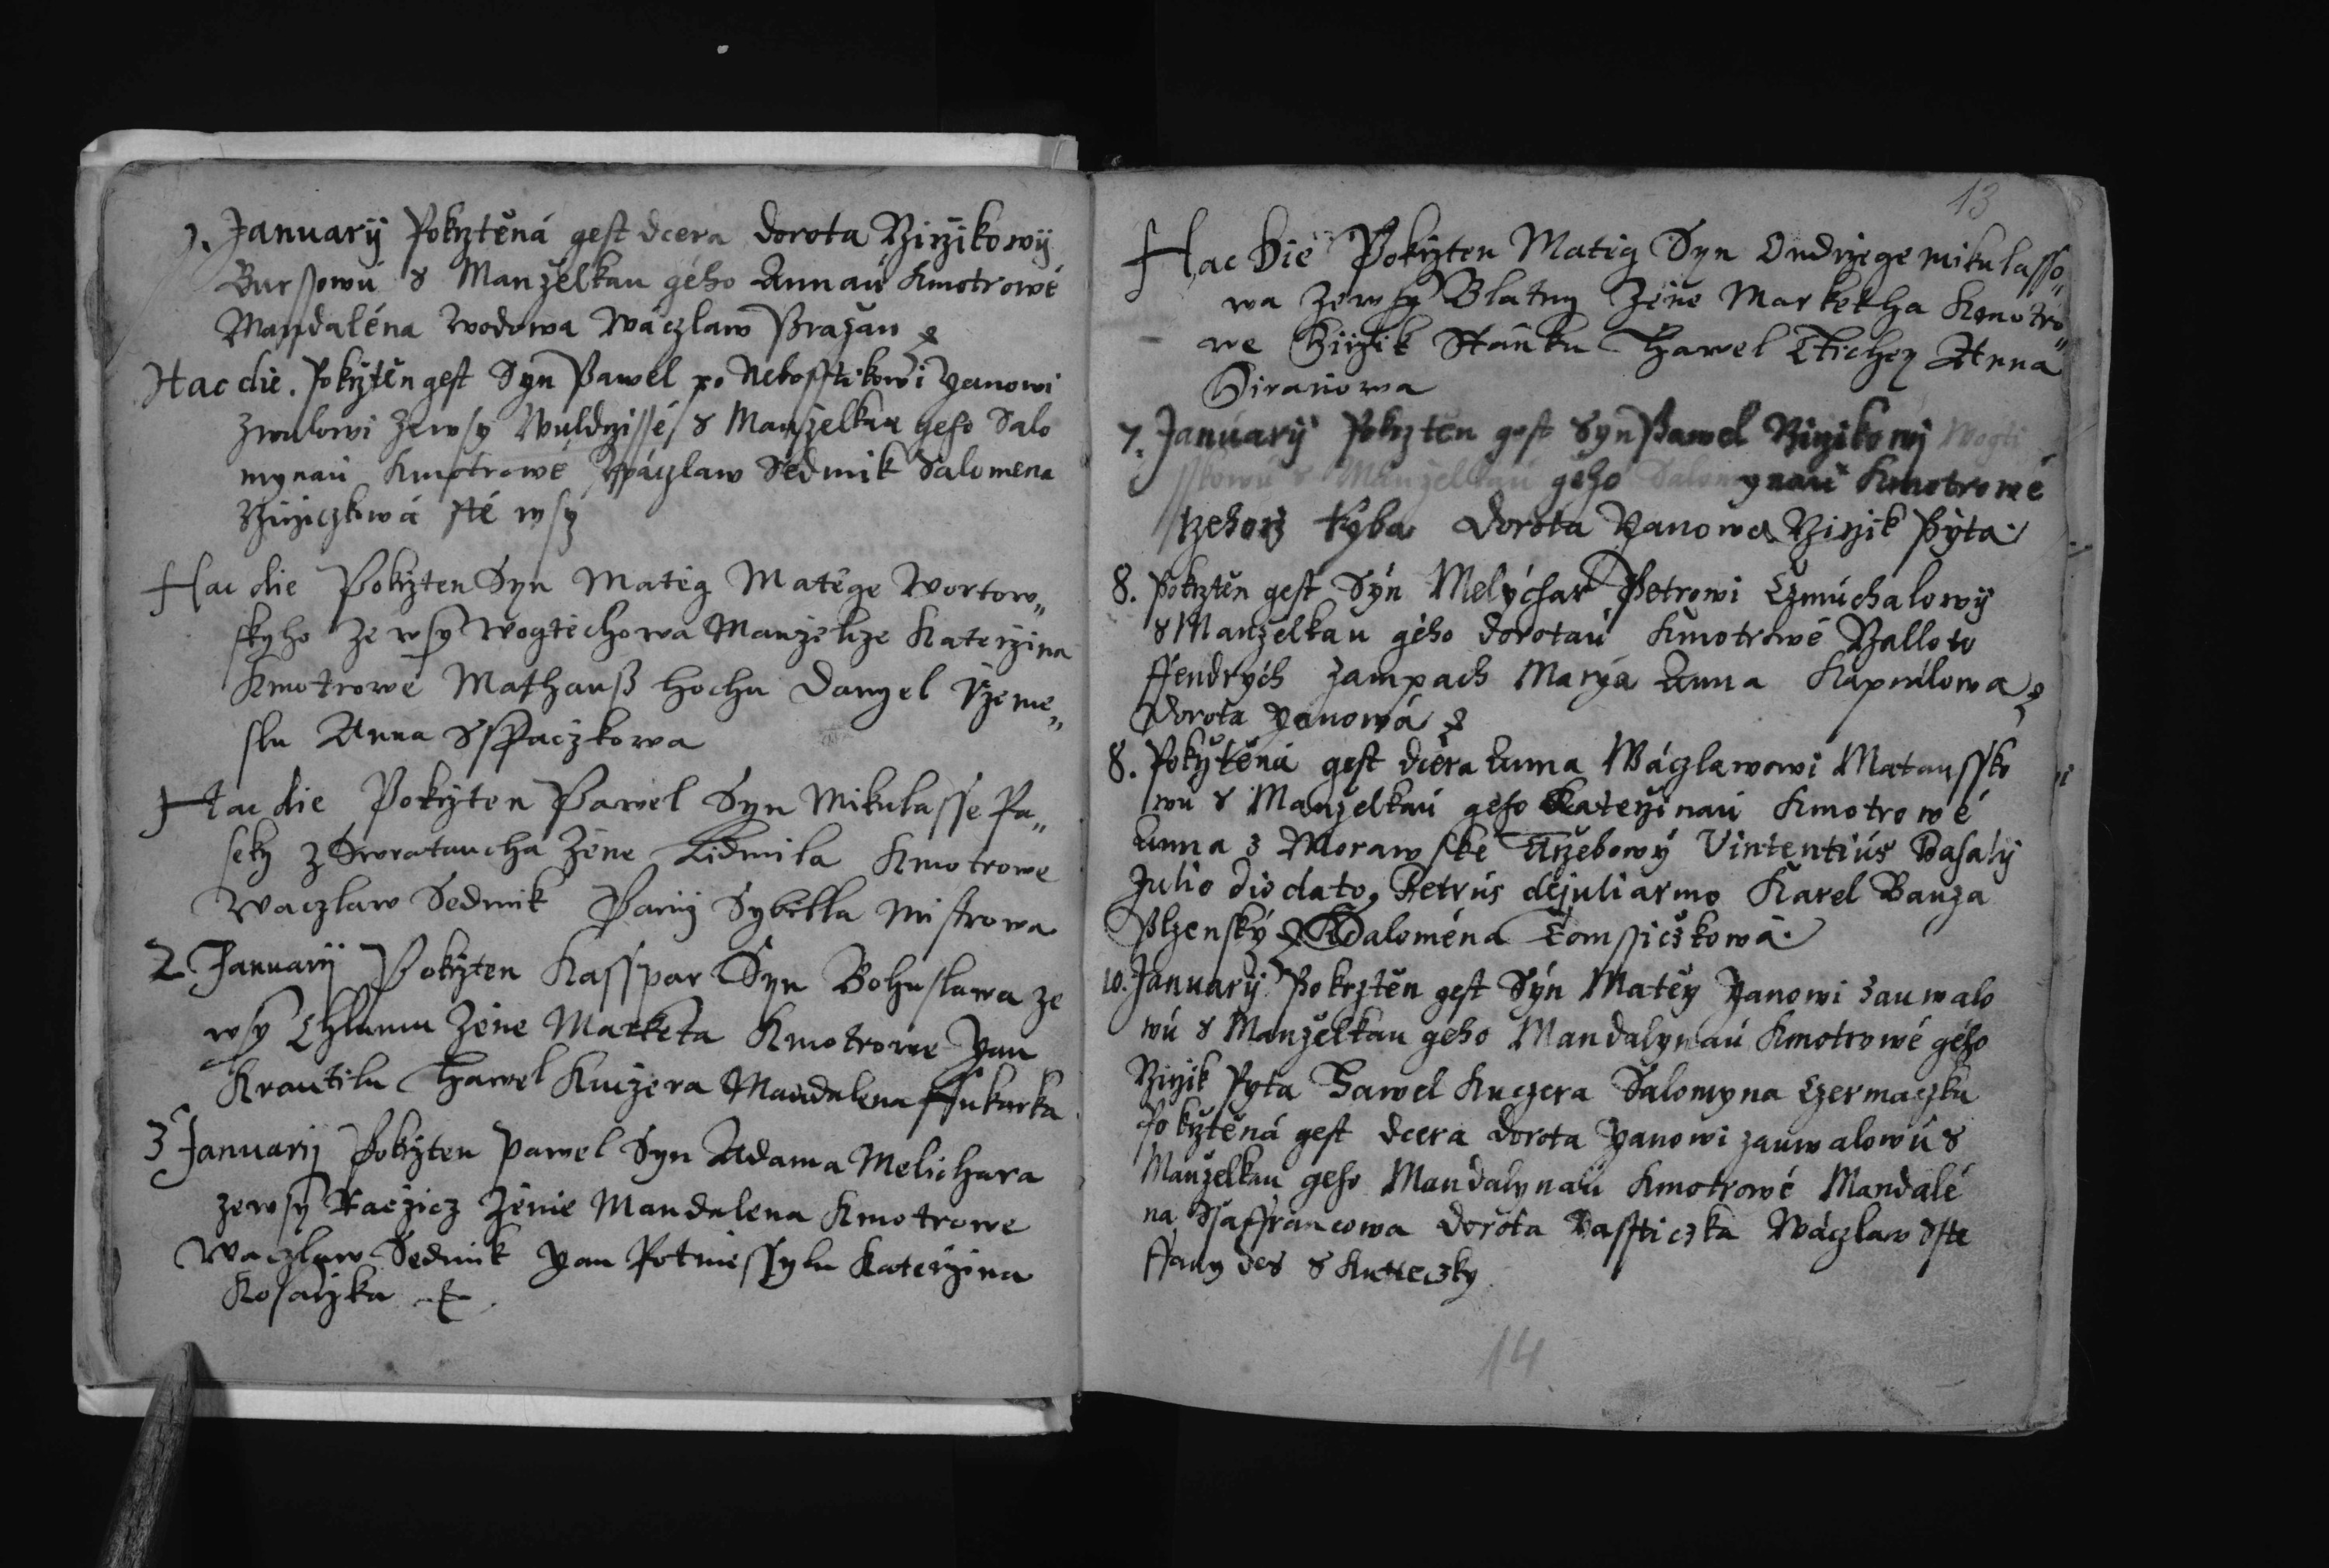 1. January Pokrztěná gest dcera Dorota Birzikowy
Burssowu s Manželkau geho Annau Kmotrowé
Mandaléna Wodowa Wáczlaw Pražan
Hac die. Pokrztěn gest Syn Pawel po Nebosstikowi Yanowi
zewsy s Manzelkau geho Salo
mynau Kmotrowé Wáczlaw Sedmik Salomena
zté wsy
Hac die Pokrzten Syn Matěg Matěge Wortow„
skyho ze wsy Wogtěchowa Manzelcze Katerzina
Kmotrowe Mathauß Hochu Danyel Rzeme„
slu Anna Sspaczkowa
Hac die Pokrzten Pawel Syn Mikulasse Pa„
seky z Swrataucha Zěne Lidmila Kmotrowe
Waczlaw Sedmik Panij Sybilla Mistrowa
2 Januarij Pokrzten Kasspar Syn Bohuslawa ze
wsy Chlumu Zěne Marketa Kmotrowe Yan
Krautilu Hawel Kuczera Mandalena Ffukarka
3 Januarij Pokrzten Pawel Syn Adama Melichara
zewsy Raczicz Zěnie Mandalena Kmotrowe
Waczlaw Sedmik Yan Potmiessylu Katerzina
Kosatzka
13
Hac Die Pokrzten Matěg Syn Ondrzege Mikulasso„
wa zewsy Blatny Zěne Marketha Kmotro„
we Girzik Stanku Hawel Tichey Anna
Giranowa
7. January Pokrztěn gest Syn Pawel Birzikowj Wogti
sskowu s Manzelkau geho Salomynau Kmotrowé
rzehorz Ryba Dorota Yanowa Birzik Pyta
8. Pokrztěn gest Syn Melychar Petrowi Czmuchalowy
s Manželkau geho Dorotau Kmotrowé Balloto
ffendrych Zampach Marya Anna Kapralowa
Dorota Yanowá
8. Pokrztěná gest dcera Anna Wáczlawowi Mataussko
wu s Manželkau geho Katerzinau Kmotrowé
Anna z Morawské Trzebowy Vintentius Basaly
Julio Diodato, Petrus dejuliarmo Karel Bauza
Plzenský Saloména Tomssiczkowá
10. January Pokrztěn gest Syn Matěy Yanowi Zauwalo
wú s Manželkau geho Mandalynaú Kmotrowé gého
Birzik Pyta Hawel Kuczera Salomyna Czermaczku
Pokrztěná gest dcera Dorota Yanowi Zauwalowú s
Manželkau geho Mandalynaú Kmotrowé Mandalé
na Ssaffrancowa Dorota Wáczlaw
ffany des s Kutteczky
14